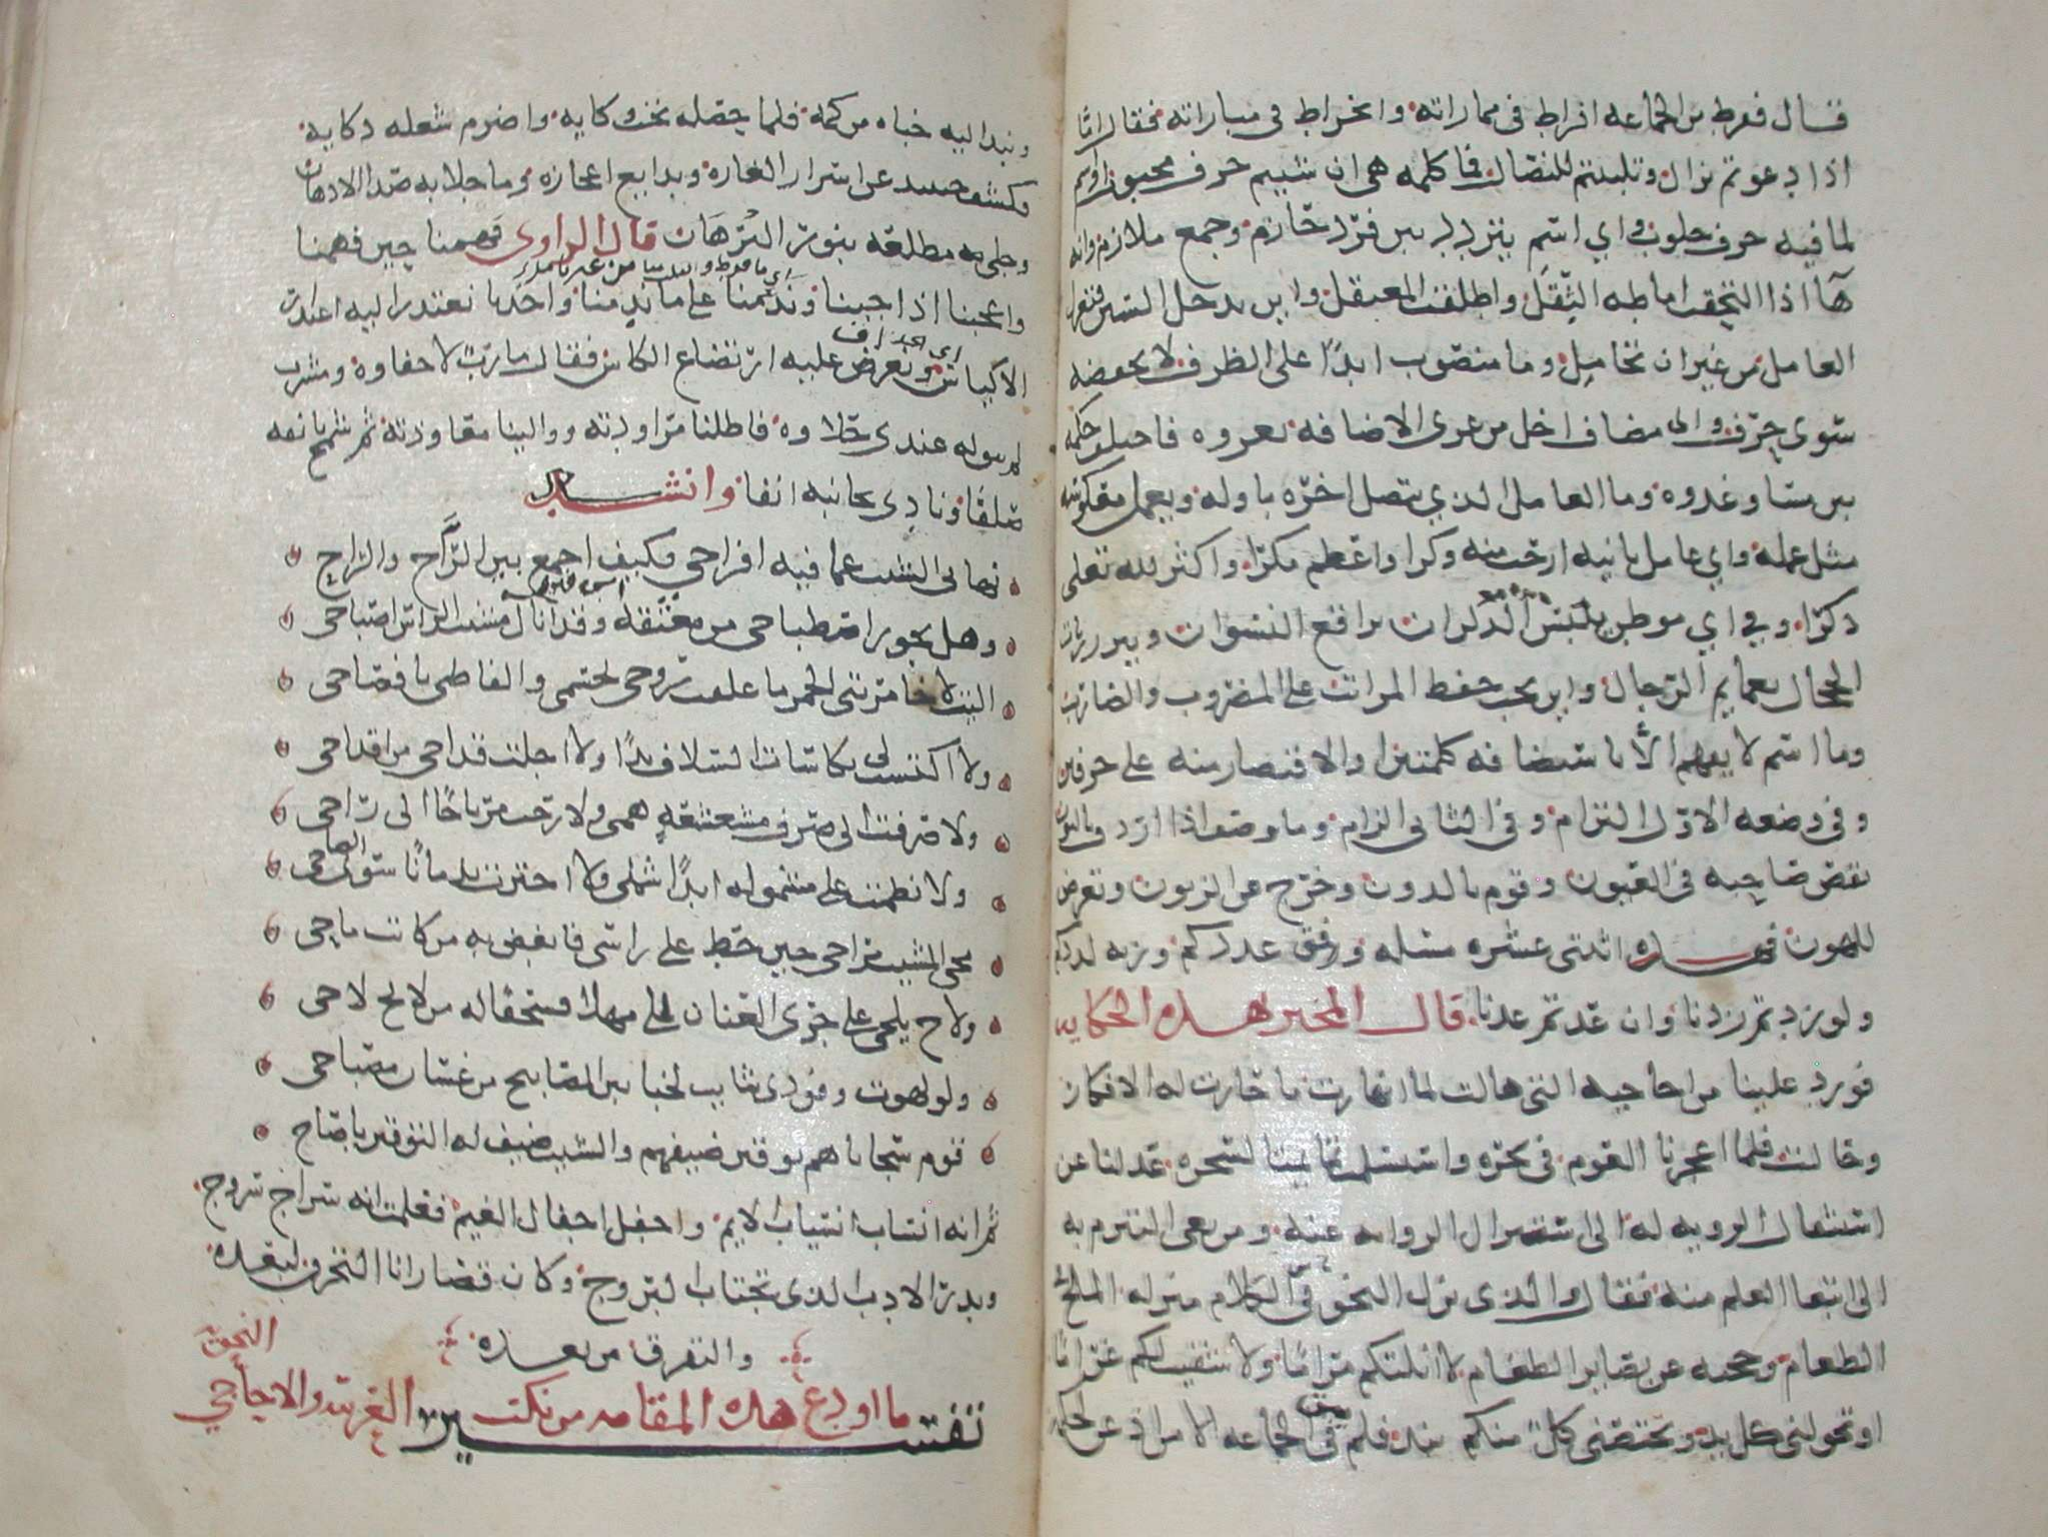 قال ففرط من الجماعة افراط في مماراته وانخراط في مباراته فقال اما
اذا دعوتم نزال وتلببتم للنضال فما كلمه هي ان شيتم حرف محبوب او اسم
لما فيه حرف حلوب واي اسم يتردد بين فرد حازم وجمع ملازم وايه
هآ اذا التحقت اماطه الثقل واطلقت المعتقل واين تدخل السين فتعزل
العامل من غير ان تجامل وما منصوب ابدًا على الظرف لا يخفضه
سوى حرف واي مضاف اخل من عرى الاضافه بعروه فاختلف حكمه
بين مسا وغدوه وما العامل الذي يتصل اخره باوله ويعمل معكوسه
مثل عمله واي عامل نايبه ارحب منه وكرا واعظم مكرا واكثر لله تعالى
ذكرا وفي اي موطن يلبس الذكران براقع النسوان وتبرز ربات
الحجال بعمايم الرجال واين يجب حفظ المراتب على المضروب والضارب
وما اسم لا يفهم الا باستضافه كلمتين او الاقتصار منه على حرفين
وفي وضعه الاول التزام وفي الثاني الزام وما وصف اذا اردف بالنون
نقص صاحبه في العيون وقوم بالدون وخرج من الزبون وتعرض
للهون فهذه اثنتي عشره مسله وفق عددكم وزنه لددكم
ولو زدتم زدنا وان عدتم عدنا قال المخبر بهذه الحكايه
فورد علينا من احاجيه التي هالت لما انهارت ما حارت له الافكار
وحالت فلما اعجزنا العوم في بحره واستسلمت تمايمنا لسحره عدلنا من
استثقال الرويه له الى استنزال الروايه عنه ومن بغي التبرم به
الى ابتغا التعلم منه فقال والذي نزل النحو في الكلام منزله الملح في
الطعام وحجبه عن بصاير الطغام لا انلتكم مراما ولا شفيت لكم غراما
او تخولني كل يد ويختصني كل منكم بيد فلم يبق في الجماعه الا من اذعن لحكمه
ونبذ اليه خباه من كمه فلما حصله تحت وكايه واضرم شعله ذكايه
فكشف حينيد عن اسرار الغازه وبدايع اعجازه وما جلا به صدا الاذهان
وجلى به مطلعه بنور البرهان قال الراوي فهمنا حين فهمنا
وعجبنا اذ اجبنا وندمنا على ما ند منا واخذنا نعتذر اليه اعتذار
اي ما فرط
الاكياس ونعرض عليه ارتضاع الكاس فقال مارب لا حفاوه ومشرب
لم يبق له عندي حلاوه فاطلنا مراودته ووالينا معاودته ثم شمخ بانفه
صلفا ونادى بجانبه انفا وانشد
نهاني الشيب عما فيه افراحي فكيف اجمع بين الراح والراح
وهل يجوز اصطباحي من معتقه وقد انار مشيب الراس اصباحي
اليت لا خامرتني الخمر ما علقت روحي بجسمي والفاظي بافصاحي
ولا اكتست لي بكاسات السلاف يد ولا اجلت قداحي من اقداحي
ولا صرفت الى صرف مشعشعه همي ولا رحت مرتاحا الى راح
ولا نظمت على مشموله ابدًا شملي ولا اخترت ندمانا سوى الصاحي
محى المشيب مراحي حين خط على راسي فابغض به من كاتب ماحي
ولاح يلحي على جري العنان الى ملهى فسحقا له من لايح لاحي
ولو لهوت وفودي شايب لخبا بين المصابيح من غسان مصباحي
قوم سجاياهم توقير ضيفهم والشيب ضيف له التوقير يا صاح
ثم انه انساب انسياب الايم واجفل اجفال الغيم فعلمت انه سراج سروج
وبدر الادب الذي يجتاب البروج وكان قصارانا التحرق لبعده
والتفرق من بعده
تفسير ما اودع هذه المقامه من نكت العربيه والاحاجي
النحويه